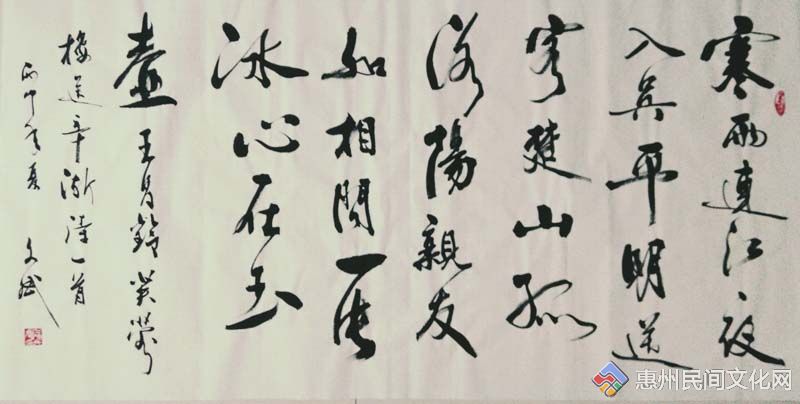 寒雨連江夜
入吳平明送
客楚山孤
洛陽親友
如相問一片
冰心在玉
壺 王昌齡芙蓉
樓送辛漸詩一首
丙申年夏 文斌
惠州民间文化网